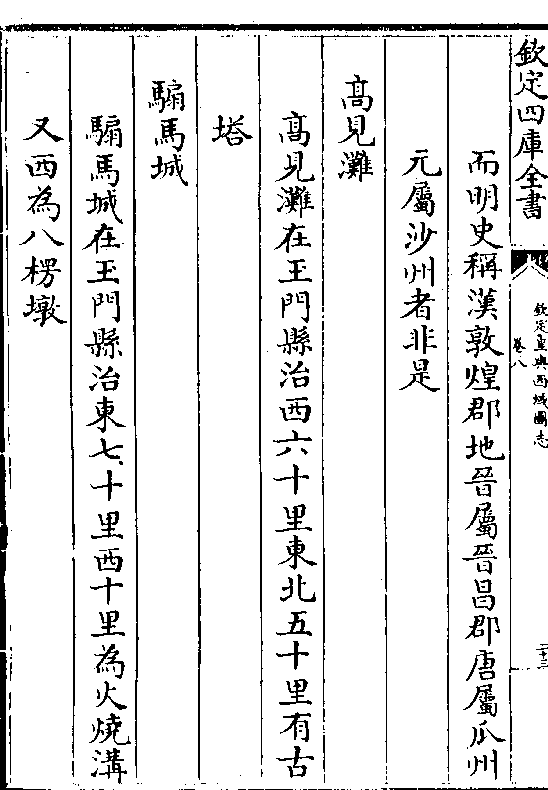 欽定四庫全書
欽定皇輿西域圖志
卷八
二十三
而明史稱漢敦煌郡地晉屬晉昌郡唐屬瓜州
元屬沙州者非是
高見灘
高見灘在玉門縣治西六十里東北五十里有古
塔
騸馬城
騸馬城在玉門縣治東七十里西十里為火燒溝
又西為八楞墩